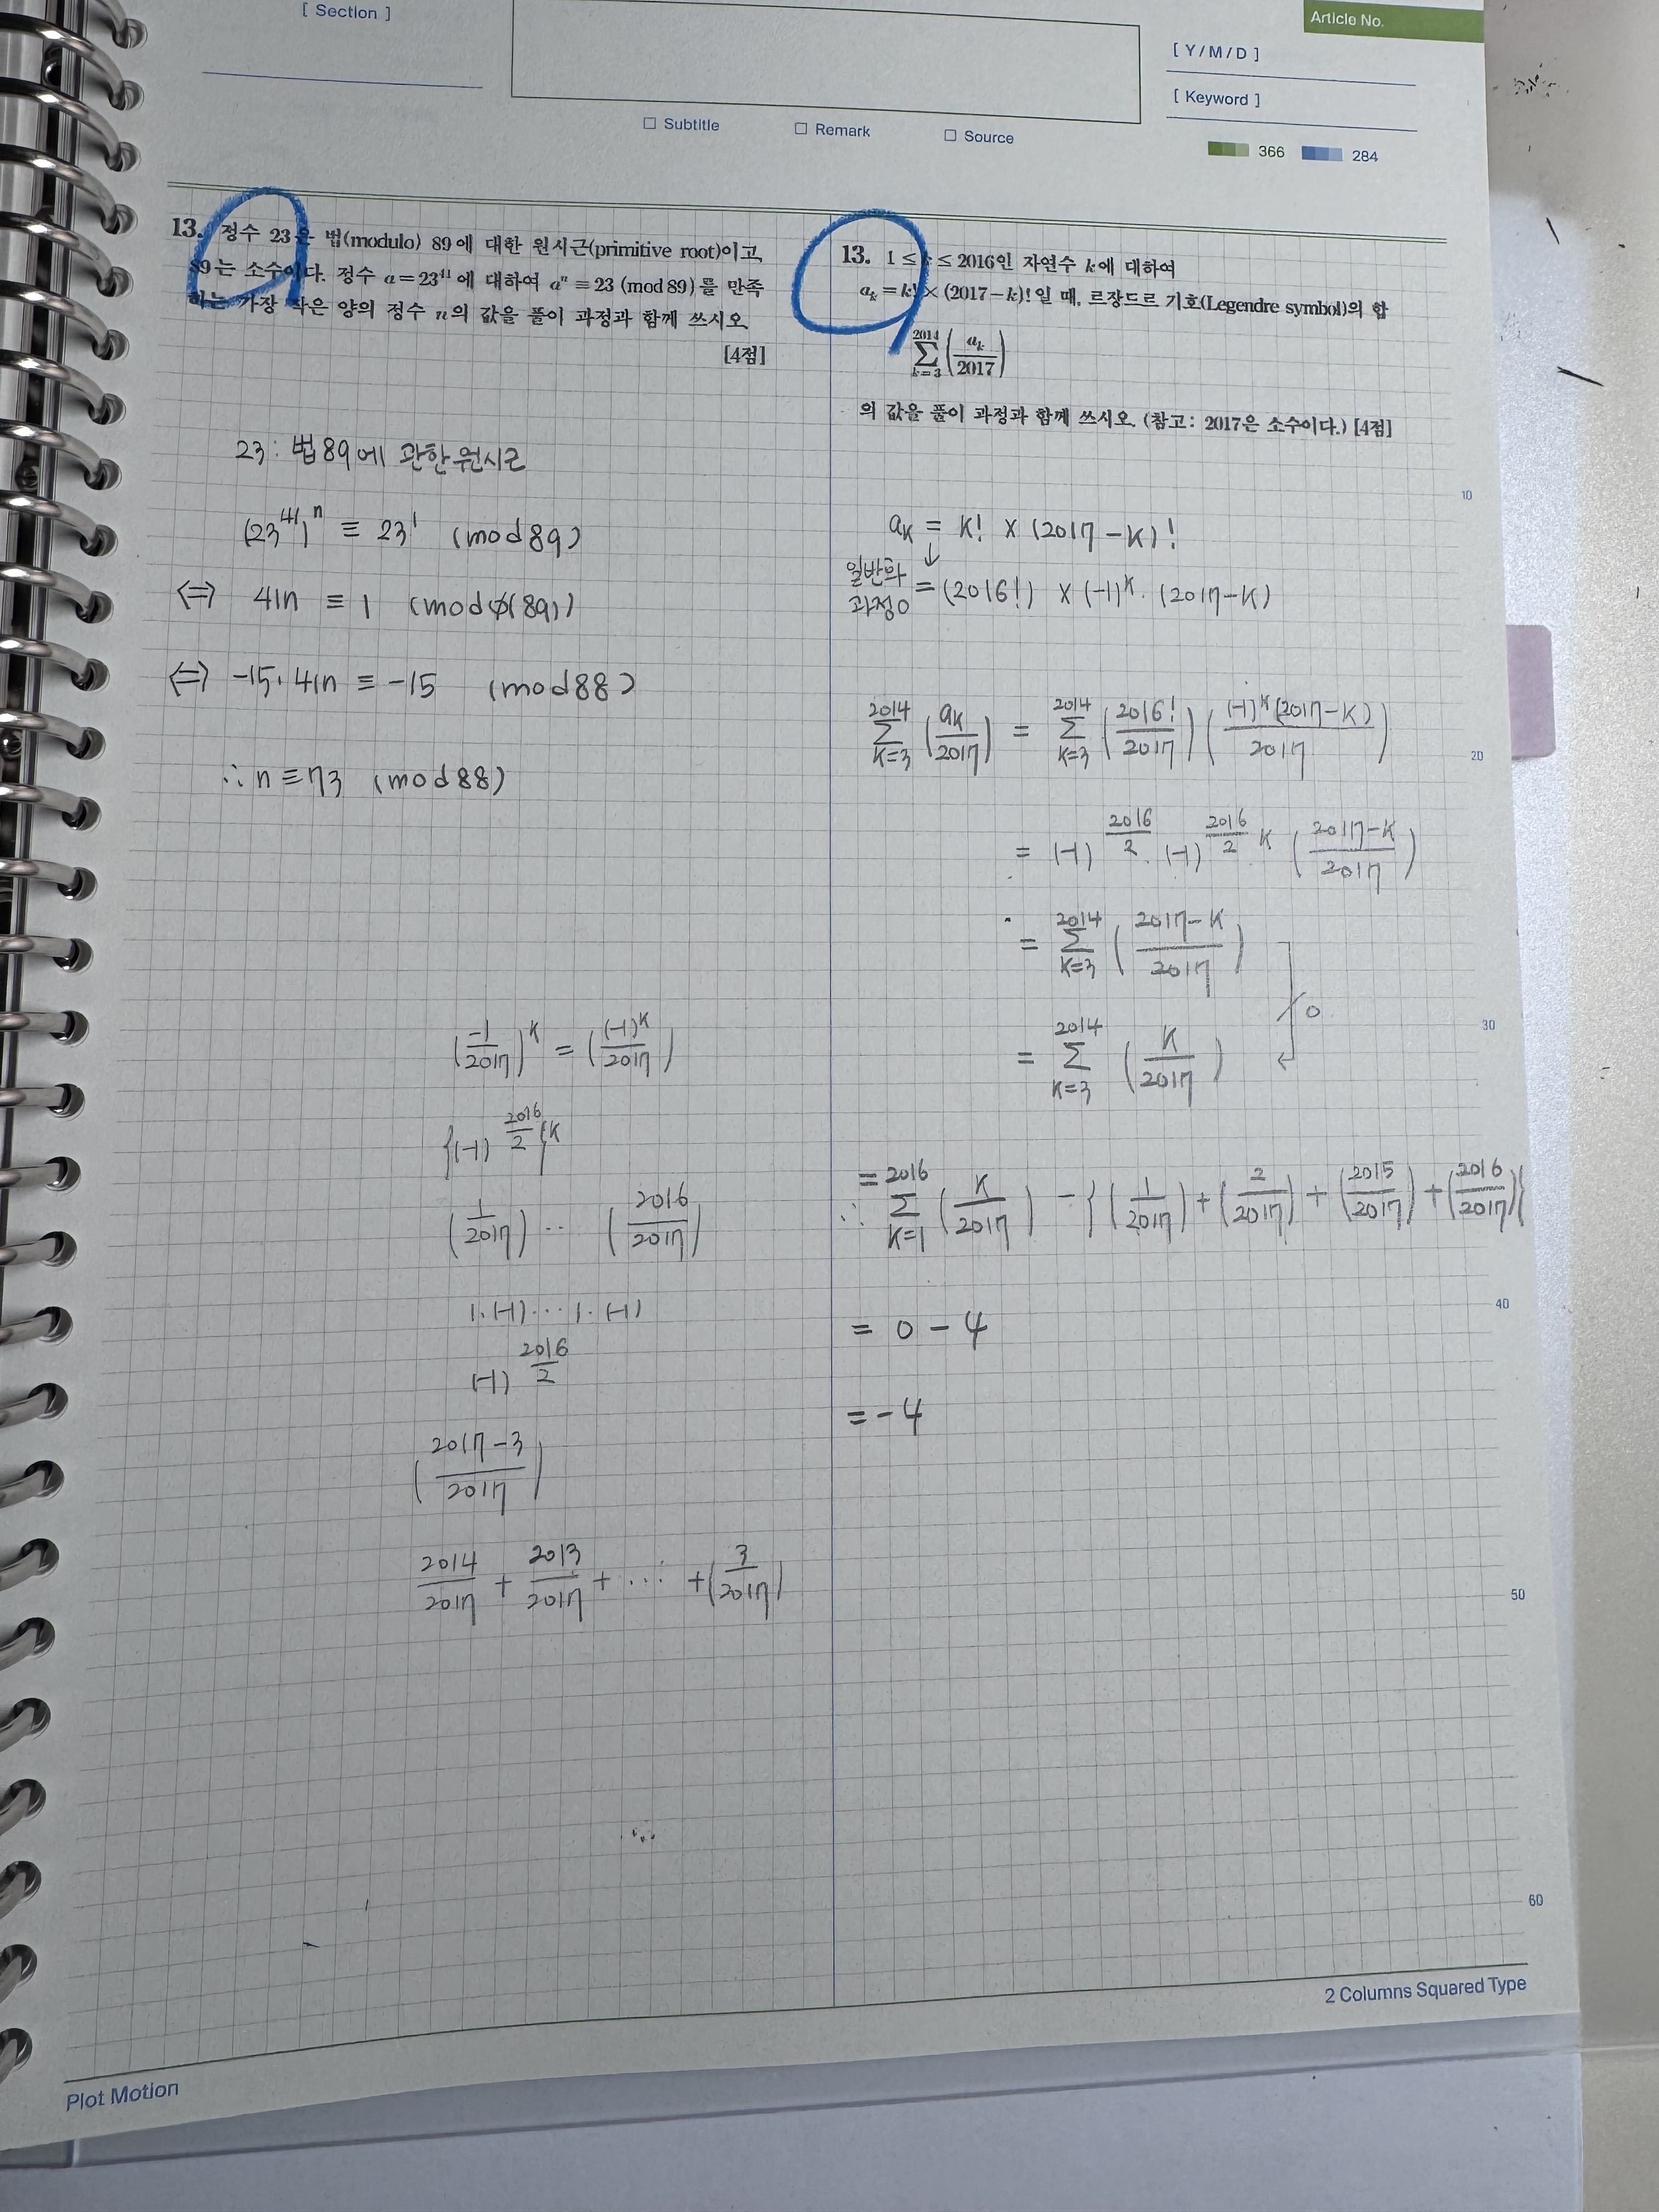 [ Section ]
Article No.
[ Y/M/D ]
[ Keyword ]
□ Subtitle □ Remark □ Source
366 284
13. 정수 23은 법(modulo) 89에 대한 원시근(primitive root)이고,
89는 소수이다. 정수 a=23⁴¹에 대하여 aⁿ≡23 (mod 89)를 만족
하는 가장 작은 양의 정수 n의 값을 풀이 과정과 함께 쓰시오.
[4점]
23: 법 89에 관한 원시근
(23⁴¹)ⁿ ≡ 23¹ (mod 89)
⇔ 41n ≡ 1 (mod φ(89))
⇔ -15·41n ≡ -15 (mod 88)
∴ n ≡ 73 (mod 88)
(-1/2017)^K = ((-1)^K/2017)
{(-1)^(2016/2)}^K
(1/2017) ·· (2016/2017)
1·(-1)···1·(-1)
(-1)^(2016/2)
((2017-3)/2017)
2014/2017 + 2013/2017 + ··· + (3/2017)
13. 1 ≤ k ≤ 2016인 자연수 k에 대하여
a_k = k! × (2017-k)! 일 때, 르장드르 기호(Legendre symbol)의 합
∑_{k=3}^{2014} (a_k/2017)
의 값을 풀이 과정과 함께 쓰시오. (참고: 2017은 소수이다.) [4점]
a_K = K! × (2017-K)!
일반화 ↓
과정o = (2016!) × (-1)^K · (2017-K)
∑_{K=3}^{2014} (a_K/2017) = ∑_{K=3}^{2014} (2016!/2017) ((-1)^K(2017-K)/2017)
= (-1)^(2016/2) · (-1)^(2016/2 K) ((2017-K)/2017)
= ∑_{K=3}^{2014} ((2017-K)/2017)
o
= ∑_{K=3}^{2014} (K/2017)
∴ = ∑_{K=1}^{2016} (K/2017) - {(1/2017) + (2/2017) + (2015/2017) + (2016/2017)}
= 0 - 4
= -4
10
20
30
40
50
60
2 Columns Squared Type
Plot Motion